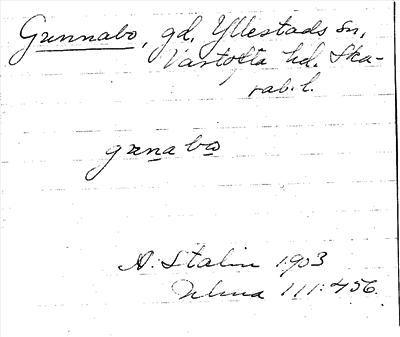 Grunnabo, gd, Yllestads sn,
Vartofta hd. Ska-
rab. l.
grunabo
A. Stalin 1903
111:456.